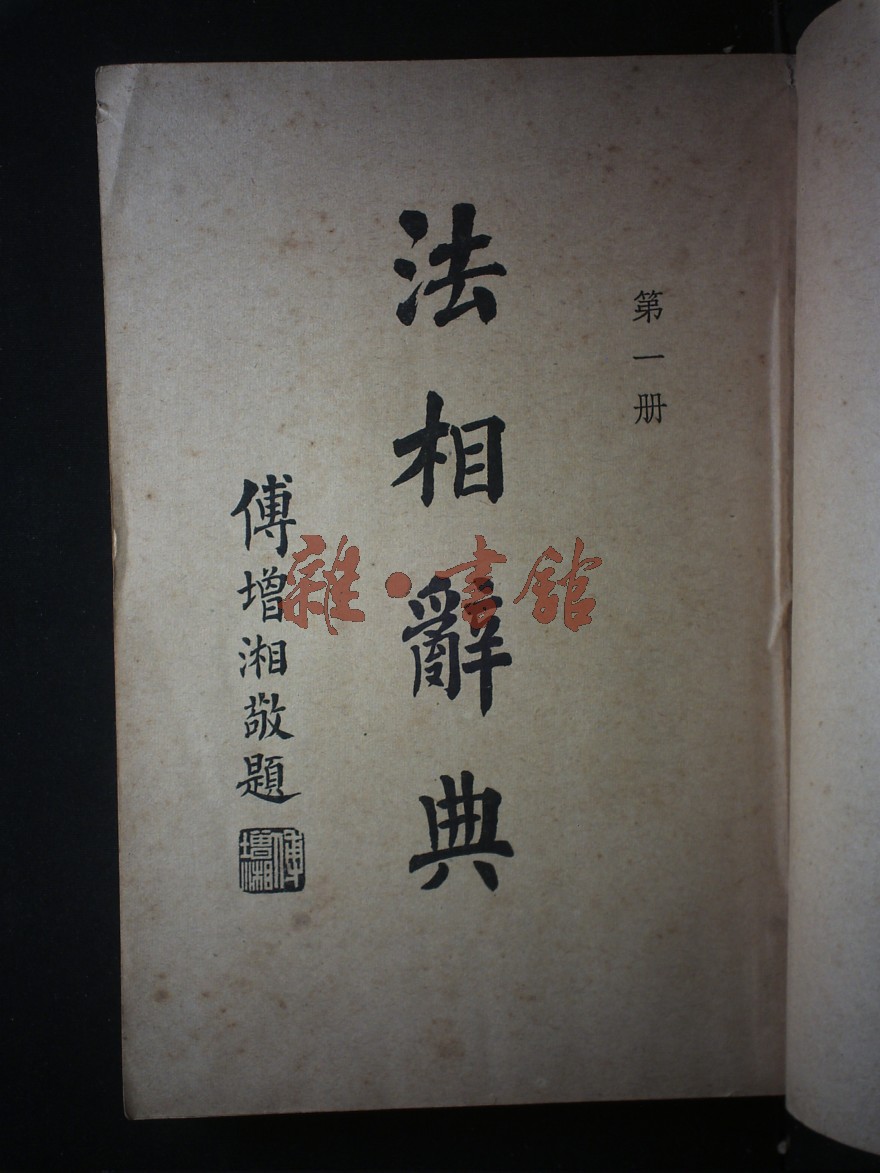 第一册
法相辭典
傅增湘敬題
傅增湘
雜·書館